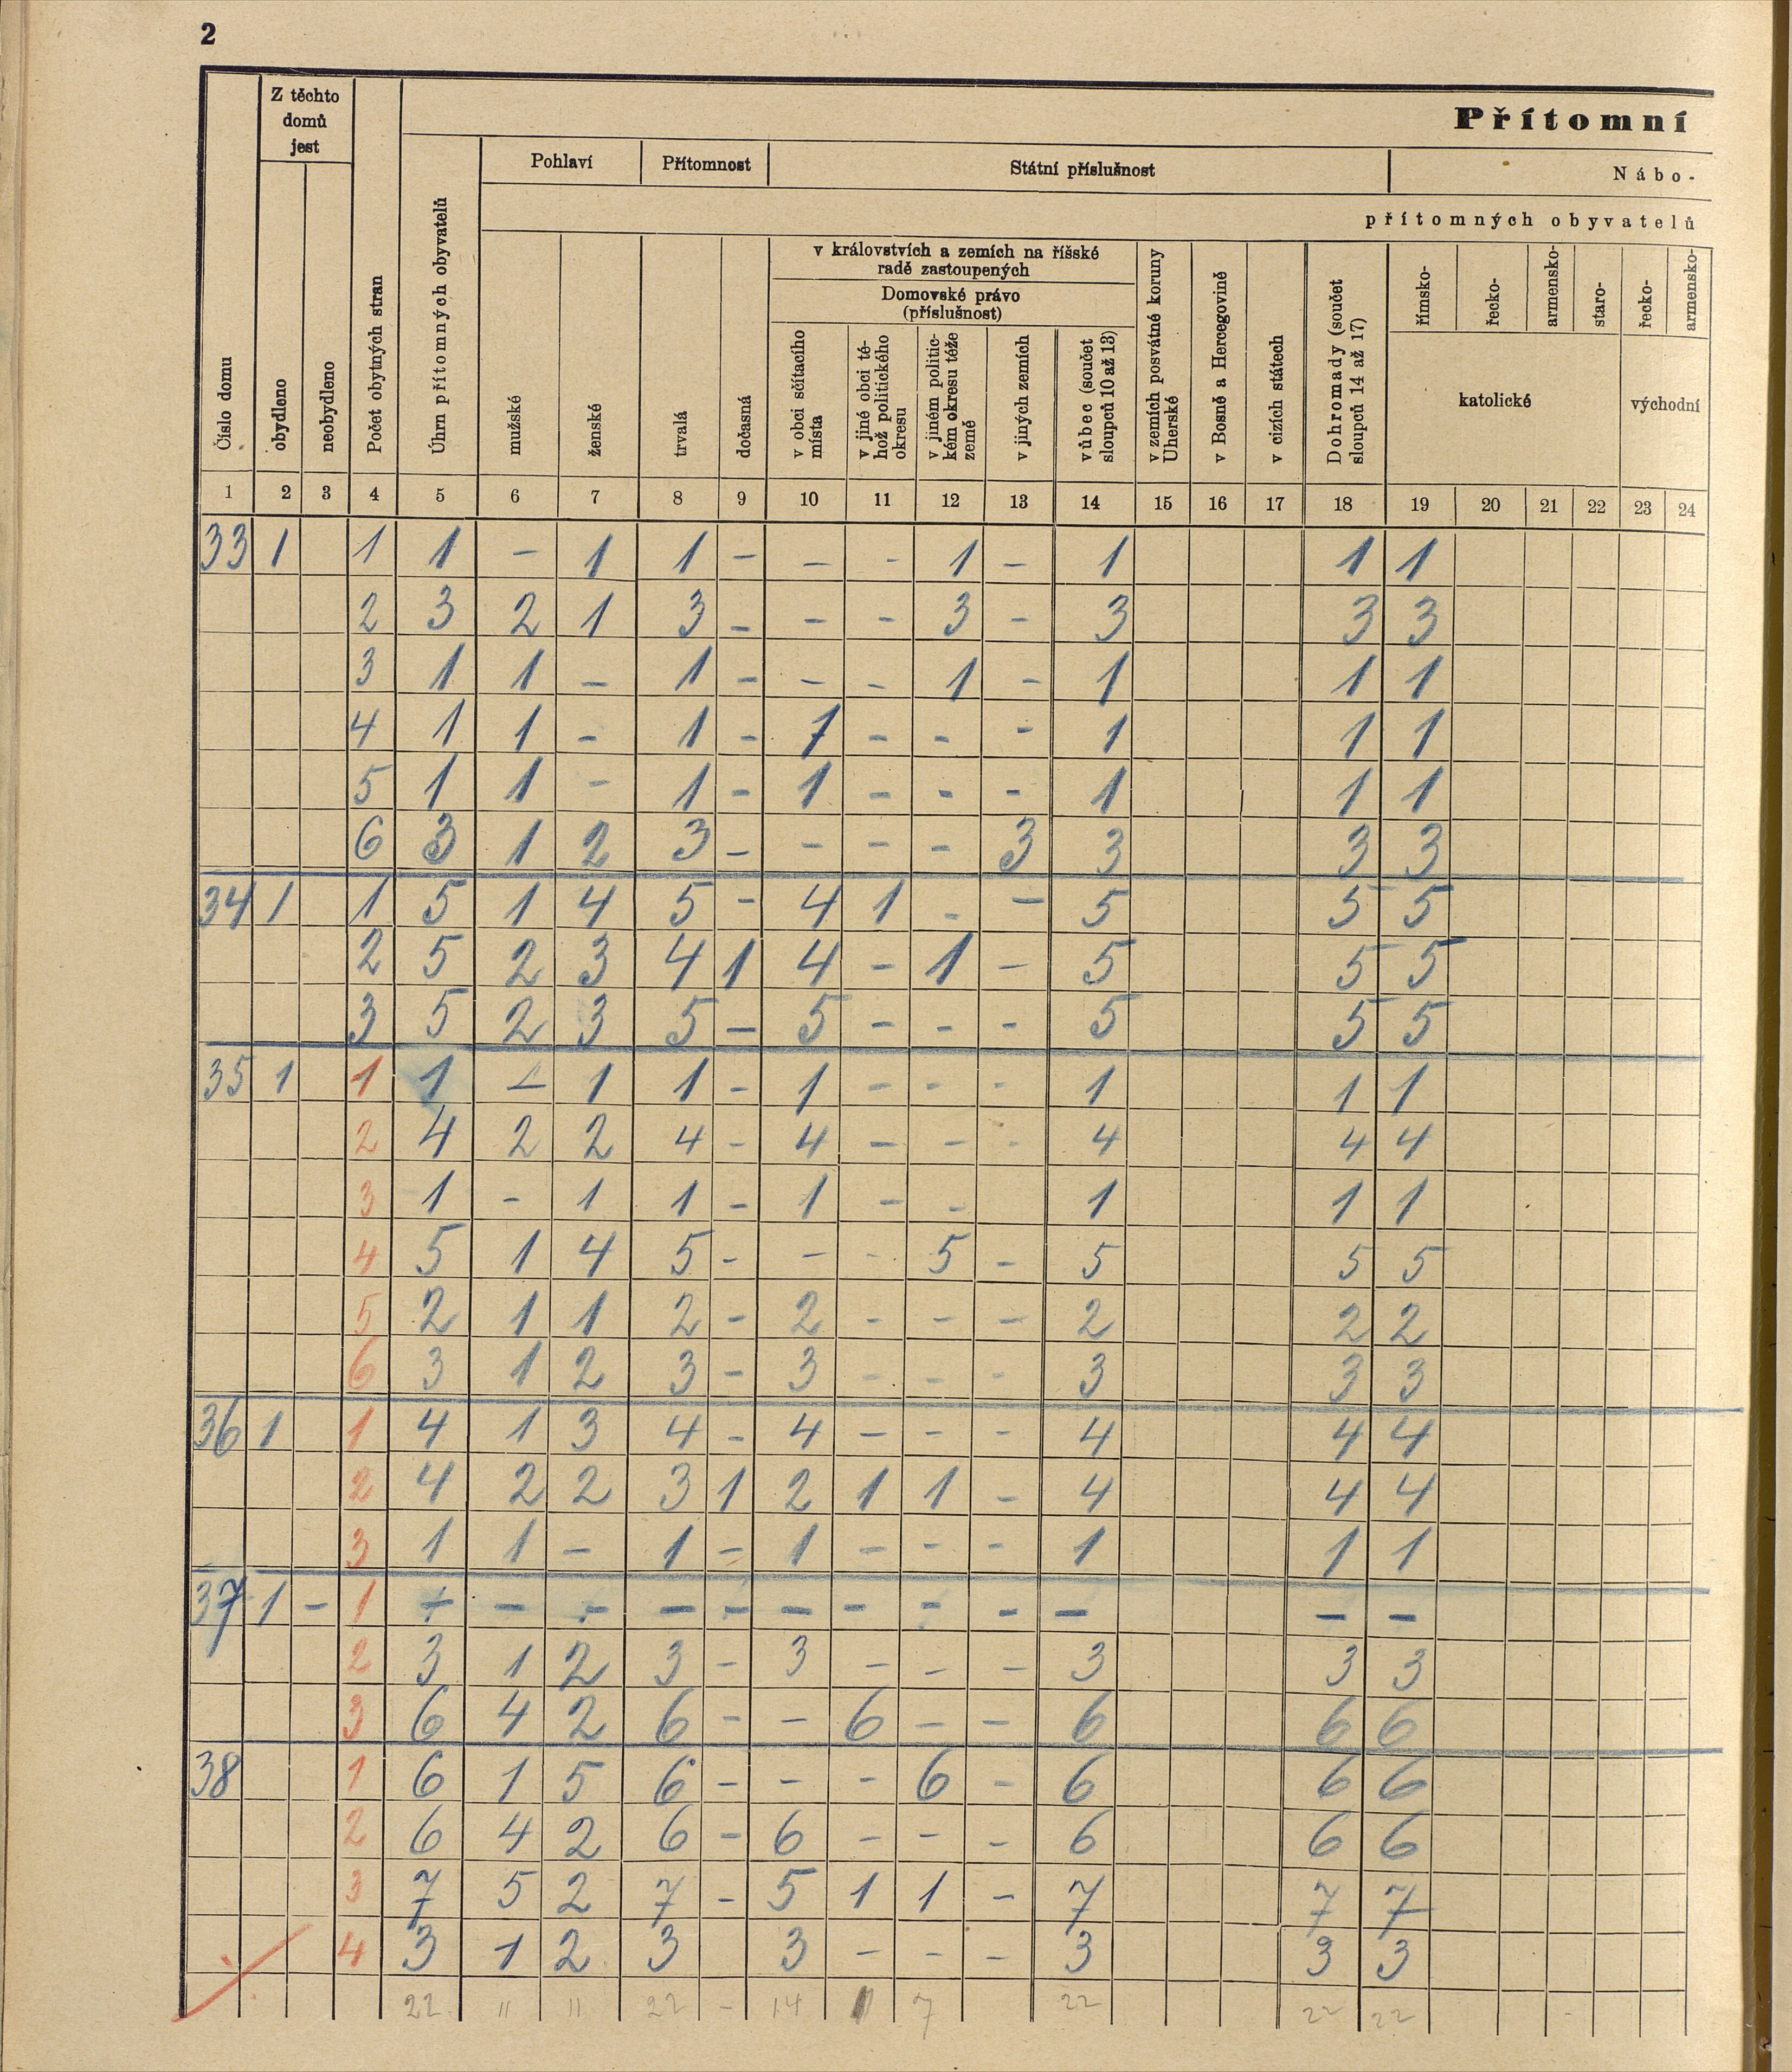 2
Přítomní
Z těchto domů jest
Pohlaví Přítomnost Státní příslušnost Nábo-
přítomných obyvatelů
v královstvích a zemích na říšské radě zastoupených
Domovské právo (příslušnost)
Číslo domu
obydleno
neobydleno
Počet obytných stran
Úhrn přítomných obyvatelů
mužské
ženské
trvalá
dočasná
v obci sčítacího místa
v jiné obci téhož politického okresu
v jiném politickém okresu téže země
v jiných zemích
vůbec (součet sloupců 10 až 13)
v zemích posvátné koruny Uherské
v Bosně a Hercegovině
v cizích státech
Dohromady (součet sloupců 14 až 17)
římsko- řecko- armensko- staro- řecko- armensko-
katolické východní
1 2 3 4 5 6 7 8 9 10 11 12 13 14 15 16 17 18 19 20 21 22 23 24
33 1 1 1 - 1 1 - - - 1 - 1 1 1
2 3 2 1 3 - - - 3 - 3 3 3
3 1 1 - 1 - - - 1 - 1 1 1
4 1 1 - 1 - 1 - - - 1 1 1
5 1 1 - 1 - 1 - - - 1 1 1
6 3 1 2 3 - - - - 3 3 3 3
34 1 1 5 1 4 5 - 4 1 - - 5 5 5
2 5 2 3 4 1 4 - 1 - 5 5 5
3 5 2 3 5 - 5 - - - 5 5 5
35 1 1 1 - 1 1 - 1 - - - 1 1 1
2 4 2 2 4 - 4 - - - 4 4 4
3 1 - 1 1 - 1 - - 1 1 1
4 5 1 4 5 - - - 5 - 5 5 5
5 2 1 1 2 - 2 - - - 2 2 2
6 3 1 2 3 - 3 - - - 3 3 3
36 1 1 4 1 3 4 - 4 - - - 4 4 4
2 4 2 2 3 1 2 1 1 - 4 4 4
3 1 1 - 1 - 1 - - - 1 1 1
37 1 - 1 - - - - - - - - - - - -
2 3 1 2 3 - 3 - - - 3 3 3
3 6 4 2 6 - - 6 - - 6 6 6
38 1 6 1 5 6 - - - 6 - 6 6 6
2 6 4 2 6 - 6 - - - 6 6 6
3 7 5 2 7 - 5 1 1 - 7 7 7
4 3 1 2 3 3 - - - 3 3 3
22 11 11 22 - 14 1 7 22 22 22